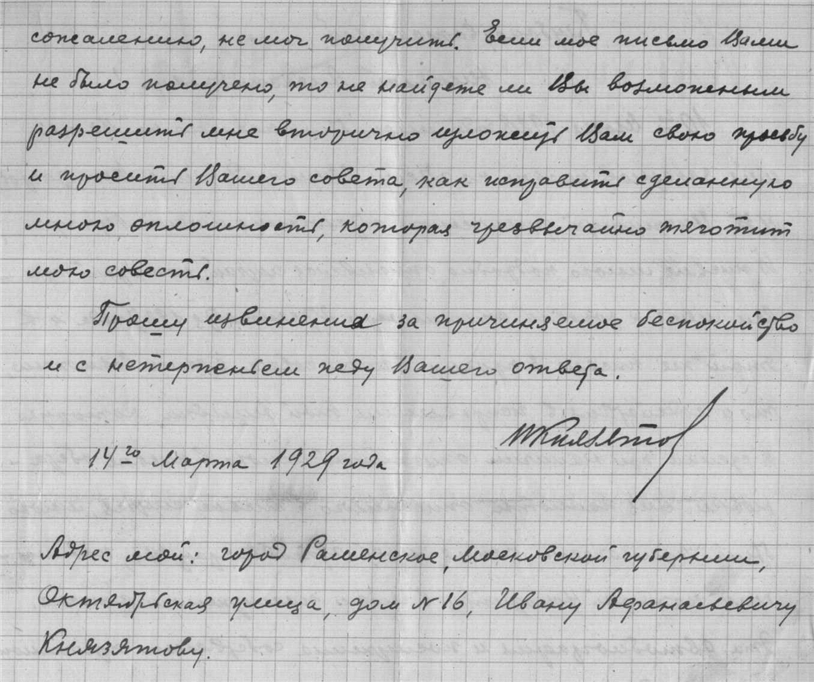 сожалению, не мог получить. Если мое письмо Вами
не было получено, то не найдете ли Вы возможным
разрешить мне вторично изложить Вам свою просьбу
и просить Вашего совета, как исправить сделанную
мною оплошность, которая чрезвычайно тяготит
мою совесть.
Прошу извинения за причиняемое беспокойство
и с нетерпеньем жду Вашего ответа.
ИКнязятов
14го Марта 1929 года
Адрес мой: город Раменское, Московской губернии,
Октябрьская улица, дом N 16, Ивану Афанасьевичу
Князятову.